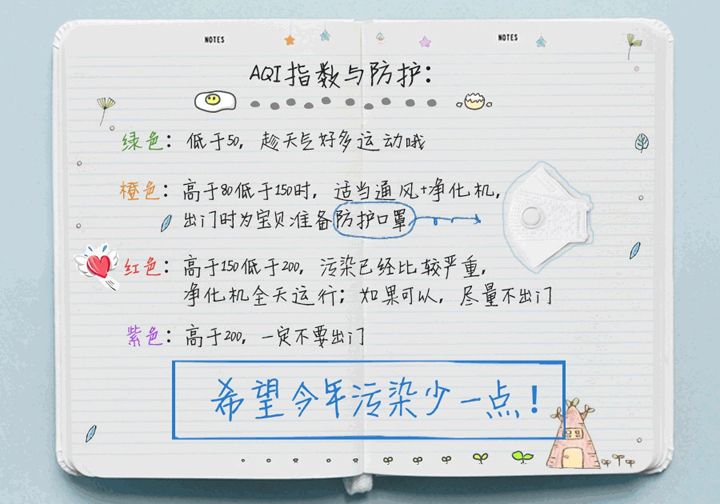 NOTES NOTES
AQI指数与防护:
绿色:低于50,趁天气好多运动哦
橙色:高于80低于150时,适当通风+净化机,
出门时为宝贝准备防护口罩
红色:高于150低于200,污染已经比较严重,
净化机全天运行;如果可以,尽量不出门
紫色:高于200,一定不要出门
希望今年污染少一点!